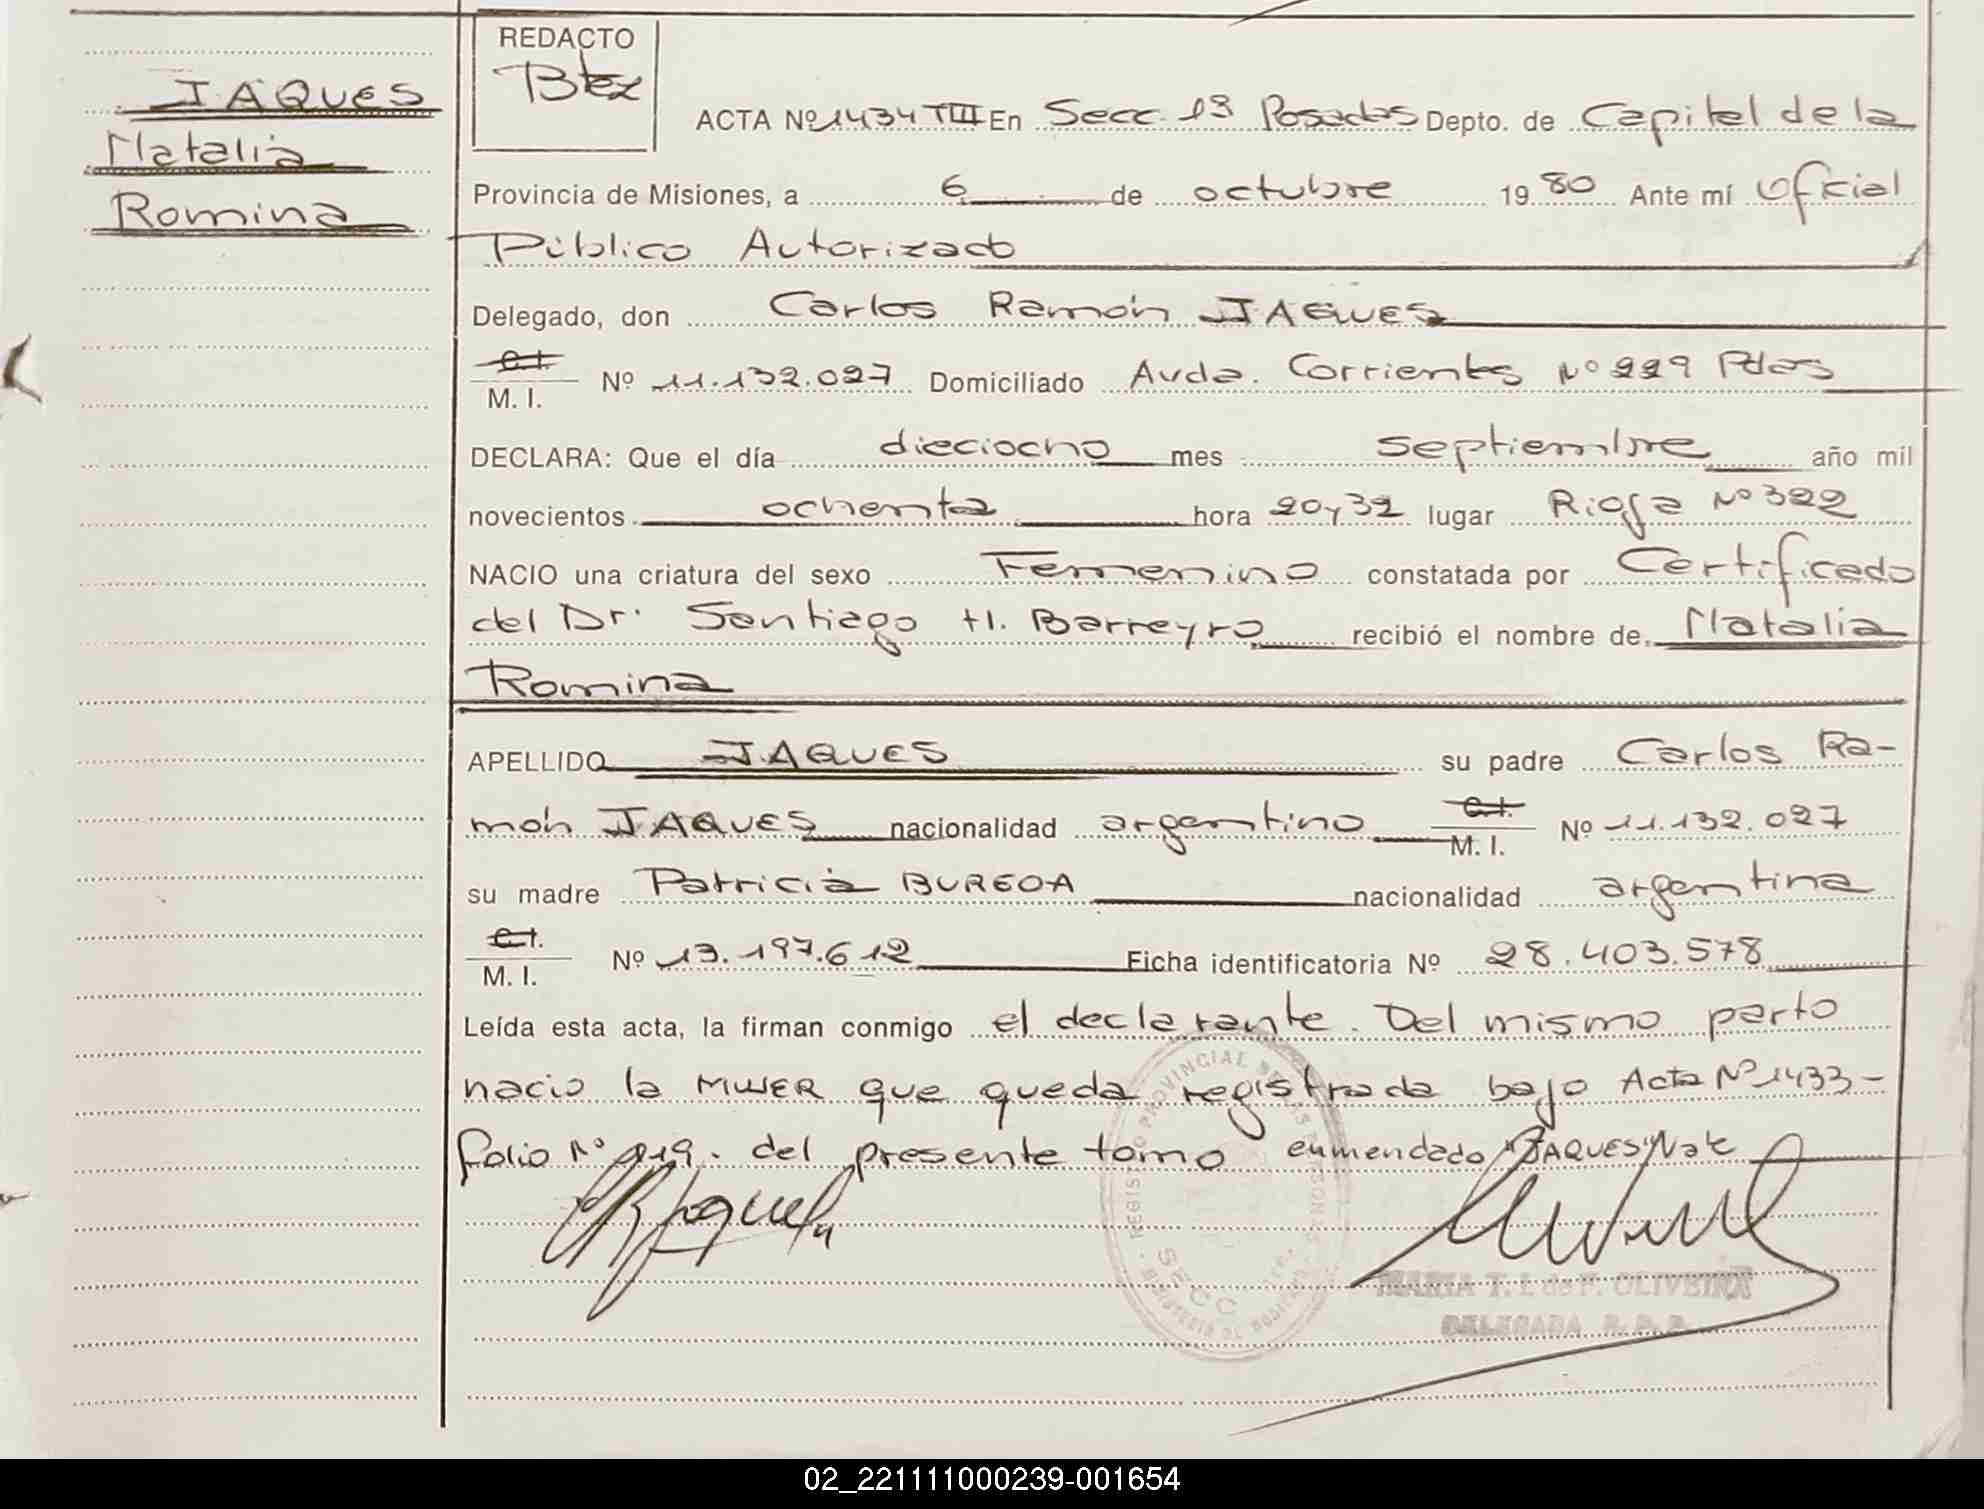 JAQUES
Natalia
Romina
REDACTO
Btez
ACTA Nº 1434 TIII En Secc. 1ª Posadas Depto. de Capital de la
Provincia de Misiones, a 6 de octubre 1980 Ante mí Oficial
Público Autorizado
Delegado, don Carlos Ramón JAQUES
C.I.
M. I. Nº 11.132.027 Domiciliado Avda. Corrientes Nº 229 Pdas
DECLARA: Que el día dieciocho mes septiembre año mil
novecientos ochenta hora 20y32 lugar Rioja Nº 322
NACIO una criatura del sexo Femenino constatada por Certificado
del Dr. Santiago H. Barreyro recibió el nombre de Natalia
Romina
APELLIDO JAQUES su padre Carlos Ra-
món JAQUES nacionalidad argentino C.I. M. I. Nº 11.132.027
su madre Patricia BUREOA nacionalidad argentina
C.I.
M. I. Nº 13.197.612 Ficha identificatoria Nº 28.403.578
Leída esta acta, la firman conmigo el declarante. Del mismo parto
nacio la MUJER que queda registrada bajo Acta Nº 1433-
folio Nº 219. del presente tomo enmendado "JAQUES" Vale
REGISTRO PROVINCIAL DE LAS PERSONAS
SECC
MARIA T. I. de F. OLIVEIRA
DELEGADA R. P. P.
02_221111000239-001654